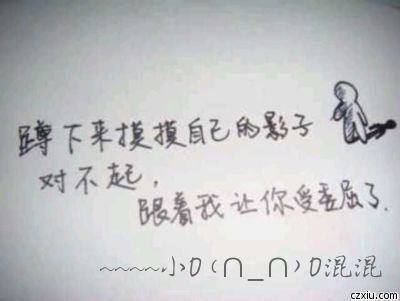 蹲下来摸摸自己的影子
对不起，
跟着我让你受委屈了.
~~~~~小O(∩_∩)O混混
czxiu.com